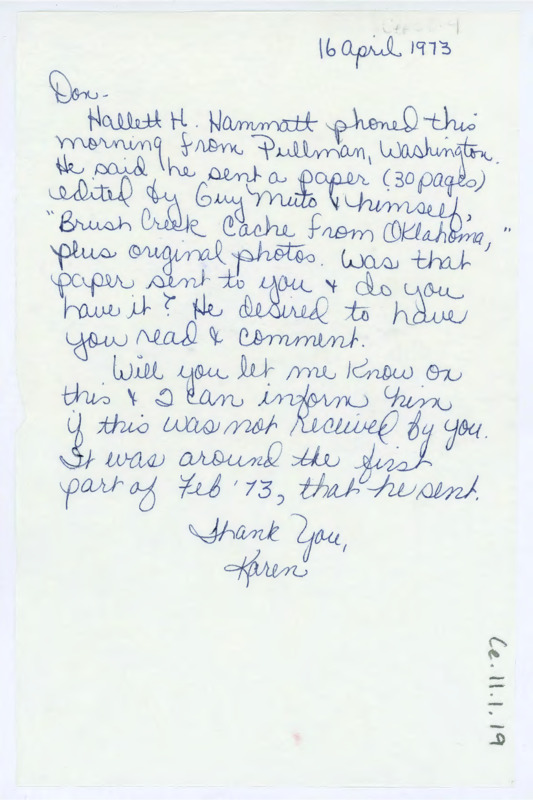 16 April 1973
Don-
Hallett H. Hammatt phoned this
morning from Pullman, Washington.
He said he sent a paper (30 pages)
edited by Guy Muto & himself,
"Brush Creek Cache from Oklahoma,"
plus original photos. Was that
paper sent to you & do you
have it? He desired to have
you read & comment.
Will you let me know on
this & I can inform him
if this was not received by you.
It was around the first
part of Feb '73, that he sent.
Thank You,
Karen
Ce.11.1.19